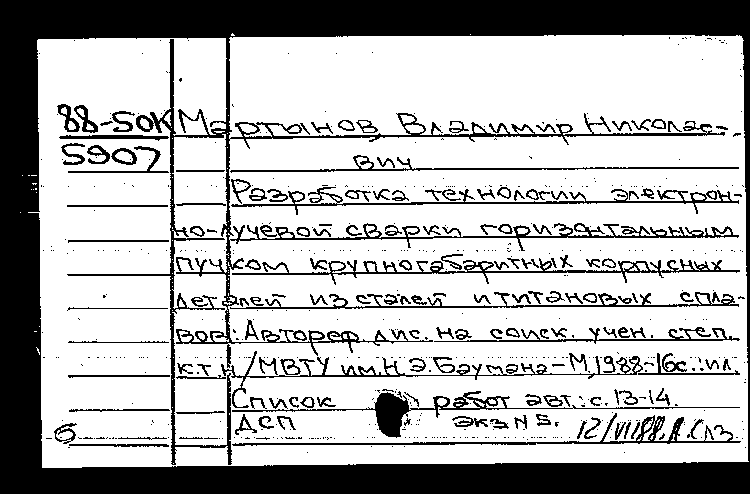 88-50К Мартынов Владимир Николае-
5907 вич
Разработка технологии электрон-
но-лучевой сварки горизонтальным
пучком крупногабаритных корпусных
деталей из сталей и титановых спла-
вов: Автореф. дис. на соиск. учен. степ.
к.т.н / МВТУ им. Н.Э. Баумана - М, 1988 - 16с.: ил.
Список работ авт.: с. 13-14.
ДСП экз N 5.
б 12/VII 88.